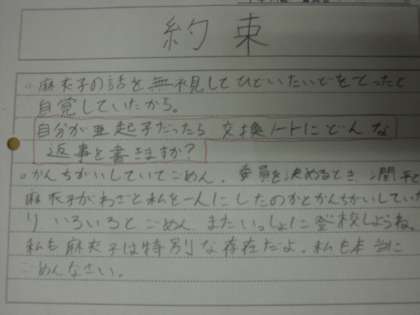 約束
○麻衣子の話を無視してひどいたいどをとったと
自覚していたから。
自分が亜起子だったら交換ノートにどんな
返事を書きますか？
○かんちがいしていてごめん。委員を決めるとき、
麻衣子がわざと私を一人にしたのかとかんちがいしていた
り いろいろとごめん またいっしょに登校しようね。
私も麻衣子は特別な存在だよ。私も本当に
ごめんなさい。